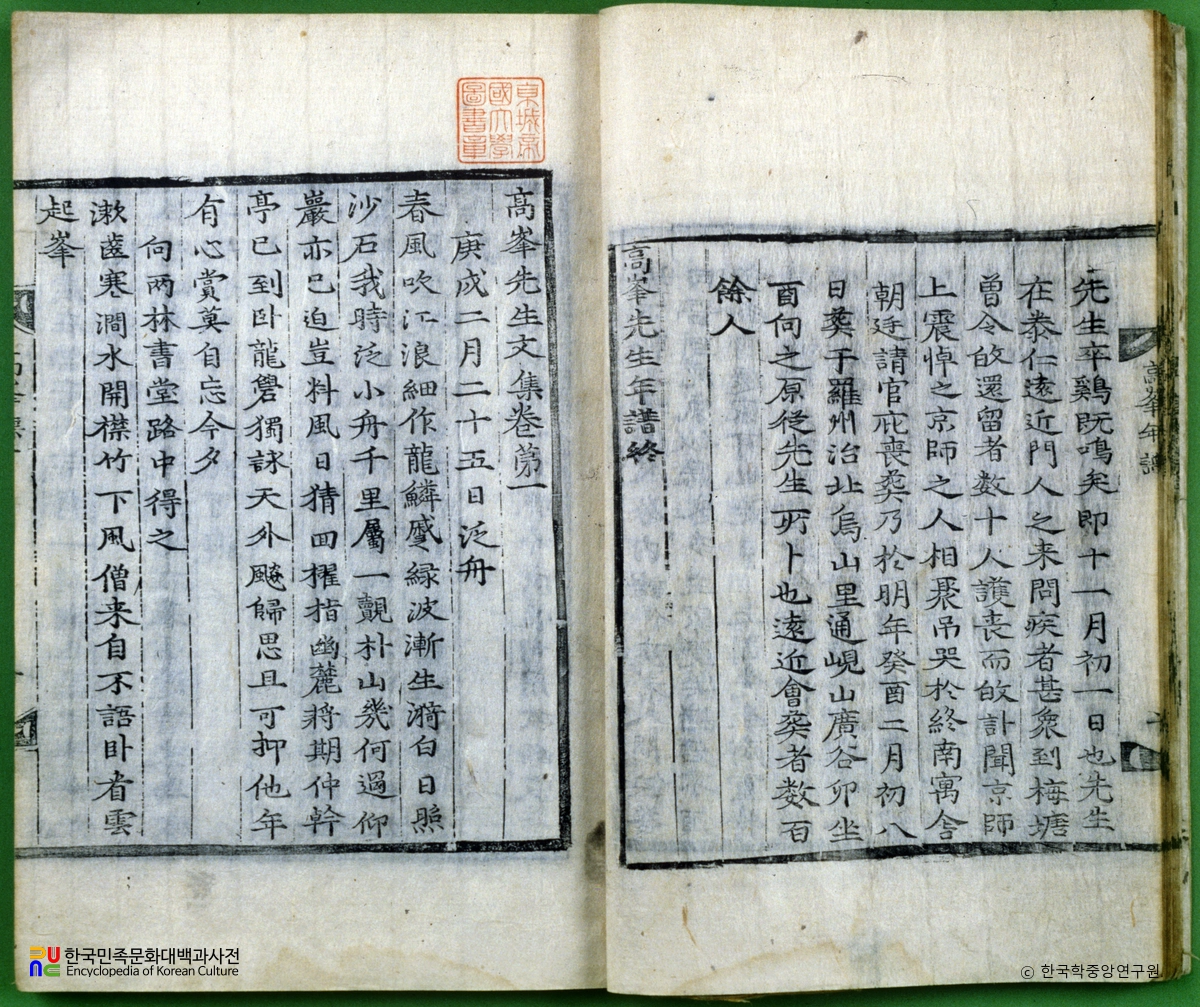 先生卒鷄既鳴矣即十一月初一日也先生
在泰仁遠近門人之来問疾者甚衆到梅塘
曾令敀還留者数十人護丧而敀訃聞京師
上震悼之京師之人相聚吊哭於終南寓舎
朝廷請官庇丧葬乃於明年癸酉二月初八
日葬于羅州治北烏山里通峴山廣谷卯坐
酉向之原従先生所卜也遠近會葬者数百
餘人
高峯先生年譜終
高峯年譜
京城帝
國大學
圖書章
高峯先生文集卷苐一
庚戌二月二十五日泛舟
春風吹江浪細作龍鱗蹙緑波漸生漪白日照
沙石我時泛小舟千里屬一覿朴山幾何過仰
巖亦已迫豈料風日猜回櫂指幽麓將期仲幹
亭已到卧龍礐獨詠天外飈歸思且可抑他年
有心賞莫自忘今夕
向两林書堂路中得之
漱齒寒澗水開襟竹下風僧来自不語卧看雲
起峯
한국민족문화대백과사전
Encyclopedia of Korean Culture
© 한국학중앙연구원